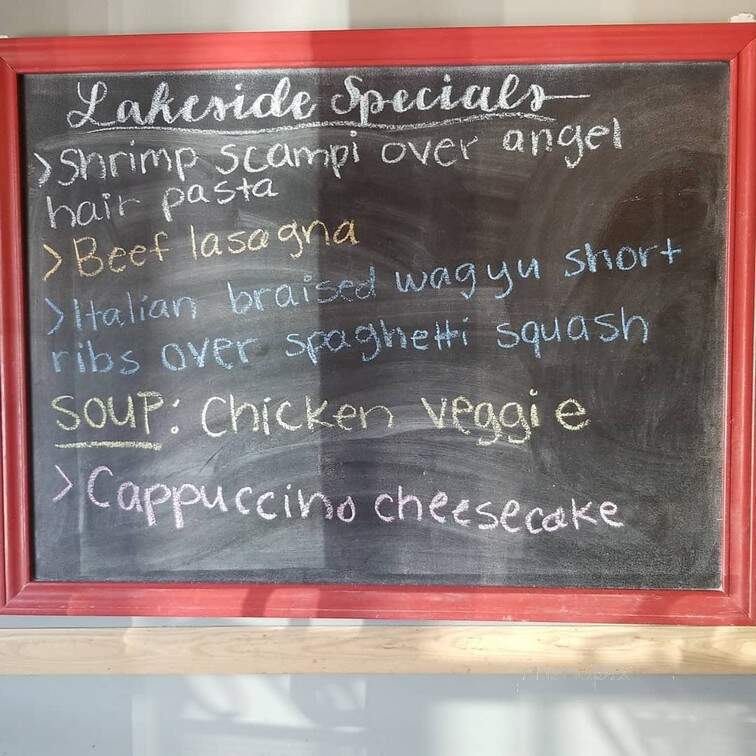 Lakeside Specials
>Shrimp scampi over angel
hair pasta
>Beef lasagna
>Italian braised wagyu short
ribs over spaghetti squash
SOUP: Chicken veggie
>Cappuccino cheesecake